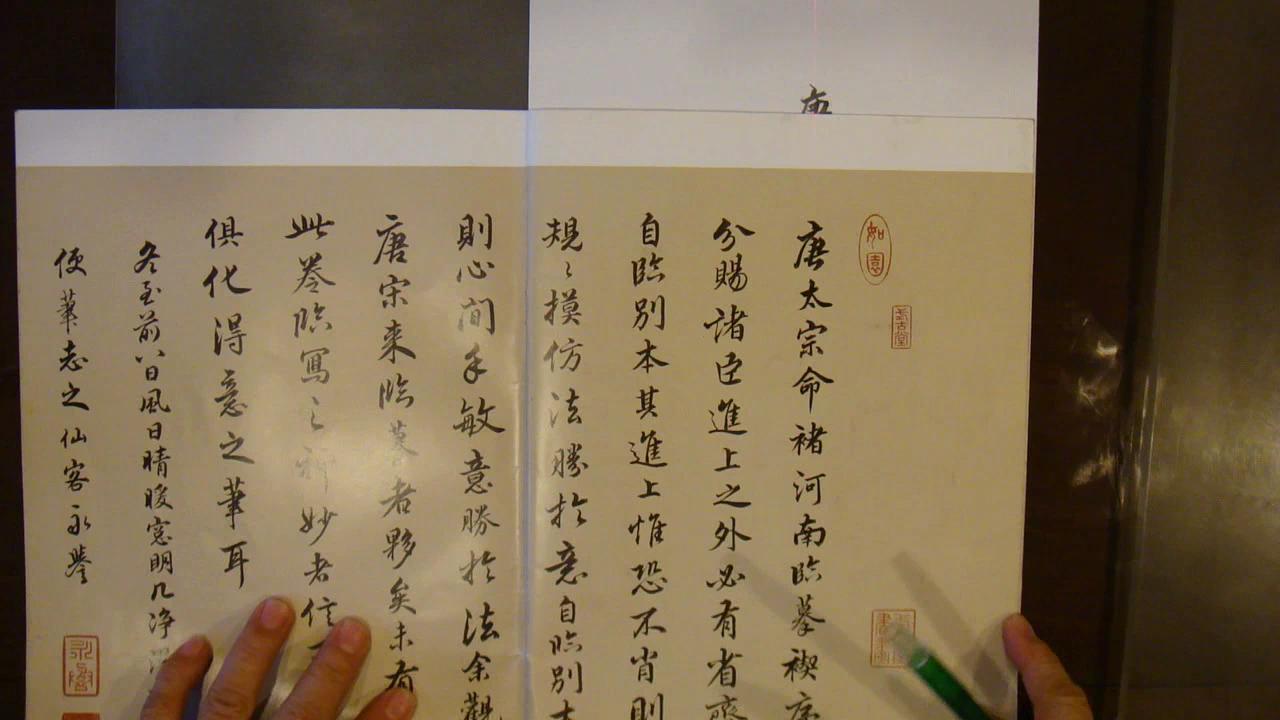 唐太宗命褚河南臨摹禊序
分賜諸臣進上之外必有省齋
自臨別本其進上惟恐不肖則
規〻摸仿法勝於意自臨別本
則心閒手敏意勝於法余觀
唐宋來臨摹者夥矣未有
此卷臨寫之神妙者信
俱化得意之筆耳
冬至前八日風日晴暖窓明几净
便筆志之仙客永譽
如園
永譽